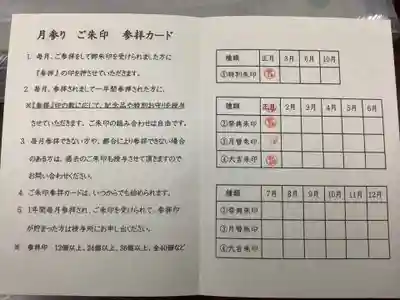 月参り ご朱印 参拝カード
1. 毎月、ご参拝をして御朱印を受けられました方に
『参拝』の印を押させていただきます。
2. 毎月、ご参拝されまして一年間参拝された方に、
※『参拝』印の数に応じて、記念品や特別お守りを授与
させていただきます。ご朱印の組み合わせは自由です。
3. 毎月参拝できない方や、都合により参拝できない場合
のある方は、過去のご朱印も授与させて頂きますので
お問い合わせください。
4. ご朱印参拝カードは、いつからでも始められます。
5. 1年間毎月参拝され、ご朱印を受けられて、参拝印
が貯まった方は授与所にお申し出ください。
※ 参拝印 12個以上、24個以上、36個以上、全40個など
種類 正月 3月 6月 10月
①特別朱印
種類 正月 2月 3月 4月 5月 6月
②祭典朱印
③月替朱印
④大吉朱印
種類 7月 8月 9月 10月 11月 12月
②祭典朱印
③月替朱印
④大吉朱印